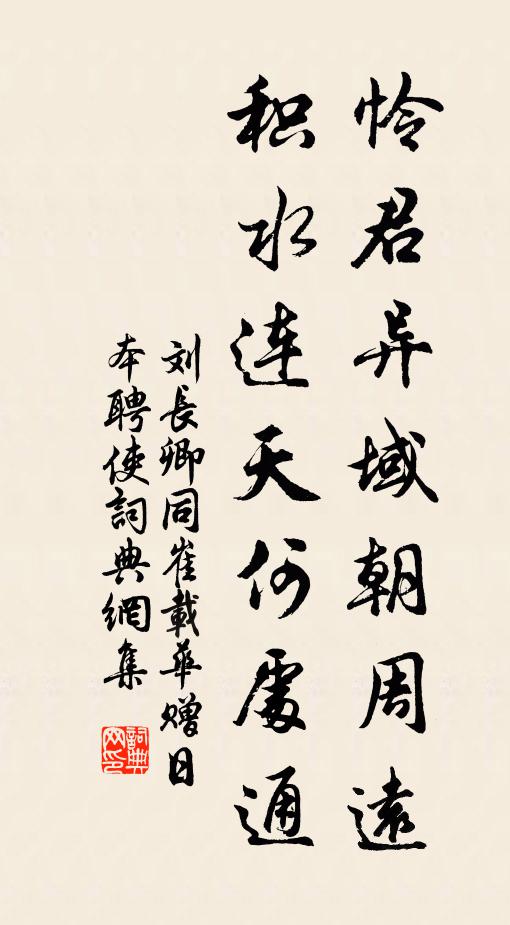 怜君异域朝周遠
积水连天何處通
刘長卿同崔載華赠日
本聘使詞典網集
詞典
网印